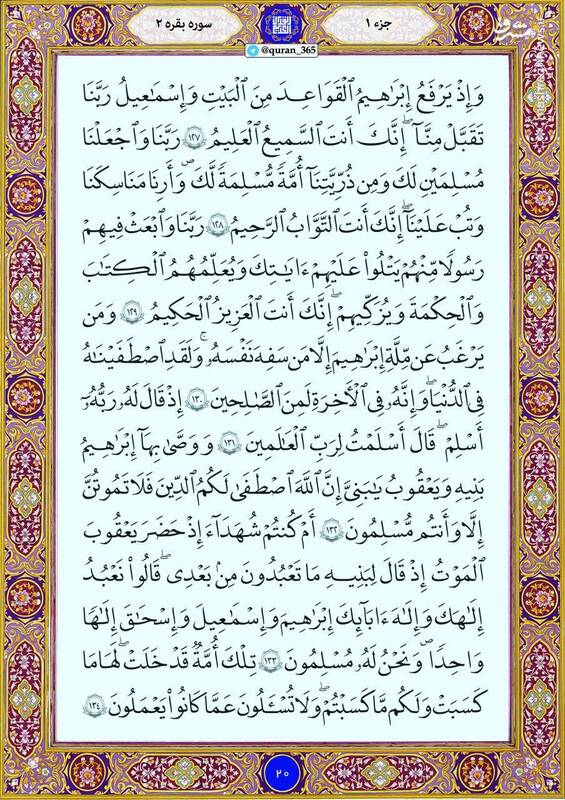 جزء ۱
سوره بقره ۲
@quran_365
وَإِذْ يَرْفَعُ إِبْرَٰهِـۧمُ ٱلْقَوَاعِدَ مِنَ ٱلْبَيْتِ وَإِسْمَٰعِيلُ رَبَّنَا
تَقَبَّلْ مِنَّآ ۖ إِنَّكَ أَنتَ ٱلسَّمِيعُ ٱلْعَلِيمُ ١٢٧ رَبَّنَا وَٱجْعَلْنَا
مُسْلِمَيْنِ لَكَ وَمِن ذُرِّيَّتِنَآ أُمَّةً مُّسْلِمَةً لَّكَ وَأَرِنَا مَنَاسِكَنَا
وَتُبْ عَلَيْنَآ ۖ إِنَّكَ أَنتَ ٱلتَّوَّابُ ٱلرَّحِيمُ ١٢٨ رَبَّنَا وَٱبْعَثْ فِيهِمْ
رَسُولًا مِّنْهُمْ يَتْلُوا۟ عَلَيْهِمْ ءَايَٰتِكَ وَيُعَلِّمُهُمُ ٱلْكِتَٰبَ
وَٱلْحِكْمَةَ وَيُزَكِّيهِمْ ۚ إِنَّكَ أَنتَ ٱلْعَزِيزُ ٱلْحَكِيمُ ١٢٩ وَمَن
يَرْغَبُ عَن مِّلَّةِ إِبْرَٰهِـۧمَ إِلَّا مَن سَفِهَ نَفْسَهُۥ ۚ وَلَقَدِ ٱصْطَفَيْنَٰهُ
فِى ٱلدُّنْيَا ۖ وَإِنَّهُۥ فِى ٱلْـَٔاخِرَةِ لَمِنَ ٱلصَّٰلِحِينَ ١٣٠ إِذْ قَالَ لَهُۥ رَبُّهُۥٓ
أَسْلِمْ ۖ قَالَ أَسْلَمْتُ لِرَبِّ ٱلْعَٰلَمِينَ ١٣١ وَوَصَّىٰ بِهَآ إِبْرَٰهِـۧمُ
بَنِيهِ وَيَعْقُوبُ يَٰبَنِىَّ إِنَّ ٱللَّهَ ٱصْطَفَىٰ لَكُمُ ٱلدِّينَ فَلَا تَمُوتُنَّ
إِلَّا وَأَنتُم مُّسْلِمُونَ ١٣٢ أَمْ كُنتُمْ شُهَدَآءَ إِذْ حَضَرَ يَعْقُوبَ
ٱلْمَوْتُ إِذْ قَالَ لِبَنِيهِ مَا تَعْبُدُونَ مِنۢ بَعْدِى ۖ قَالُوا۟ نَعْبُدُ
إِلَٰهَكَ وَإِلَٰهَ ءَابَآئِكَ إِبْرَٰهِـۧمَ وَإِسْمَٰعِيلَ وَإِسْحَٰقَ إِلَٰهًا
وَٰحِدًا ۖ وَنَحْنُ لَهُۥ مُسْلِمُونَ ١٣٣ تِلْكَ أُمَّةٌ قَدْ خَلَتْ ۖ لَهَا مَا
كَسَبَتْ وَلَكُم مَّا كَسَبْتُمْ ۖ وَلَا تُسْـَٔلُونَ عَمَّا كَانُوا۟ يَعْمَلُونَ ١٣٤
۲۰